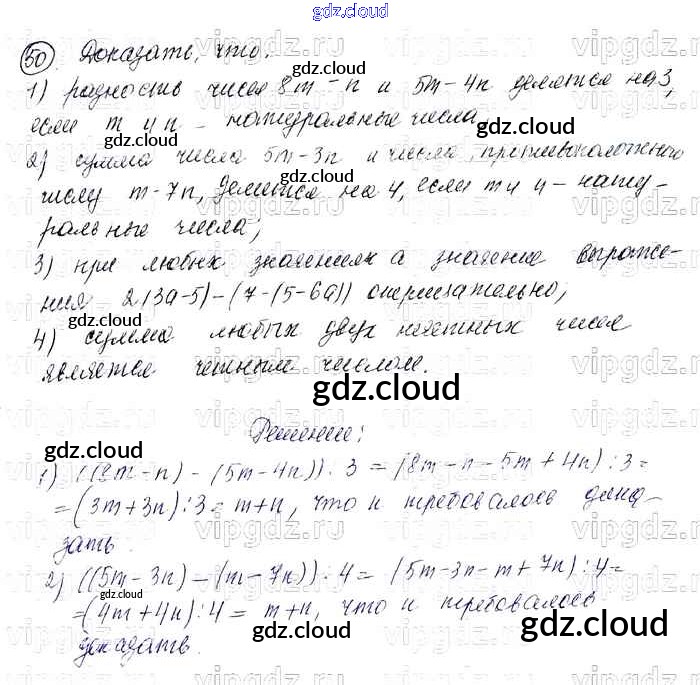 gdz.cloud
50 Доказать, что.
1) разность чисел 8m - n и 5m - 4n делится на 3,
если m и n - натуральные числа,
2) сумма числа 5m - 3n и числа, противоположного
числу m - 7n, делится на 4, если m и n - нату-
ральные числа;
3) при любых значениях a значение выраже-
ния 2(3a-5)-(7-(5-6a)) отрицательно;
4) сумма любых двух нечетных чисел
является четным числом.
gdz.cloud
Решение:
1) ((8m-n) - (5m-4n)) : 3 = (8m - n - 5m + 4n) : 3 =
= (3m+3n) : 3 = m+n, что и требовалось дока-
зать.
2) ((5m - 3n) - (m - 7n)) : 4 = (5m - 3n - m + 7n) : 4 =
= (4m + 4n) : 4 = m + n, что и требовалось
доказать.
gdz.cloud